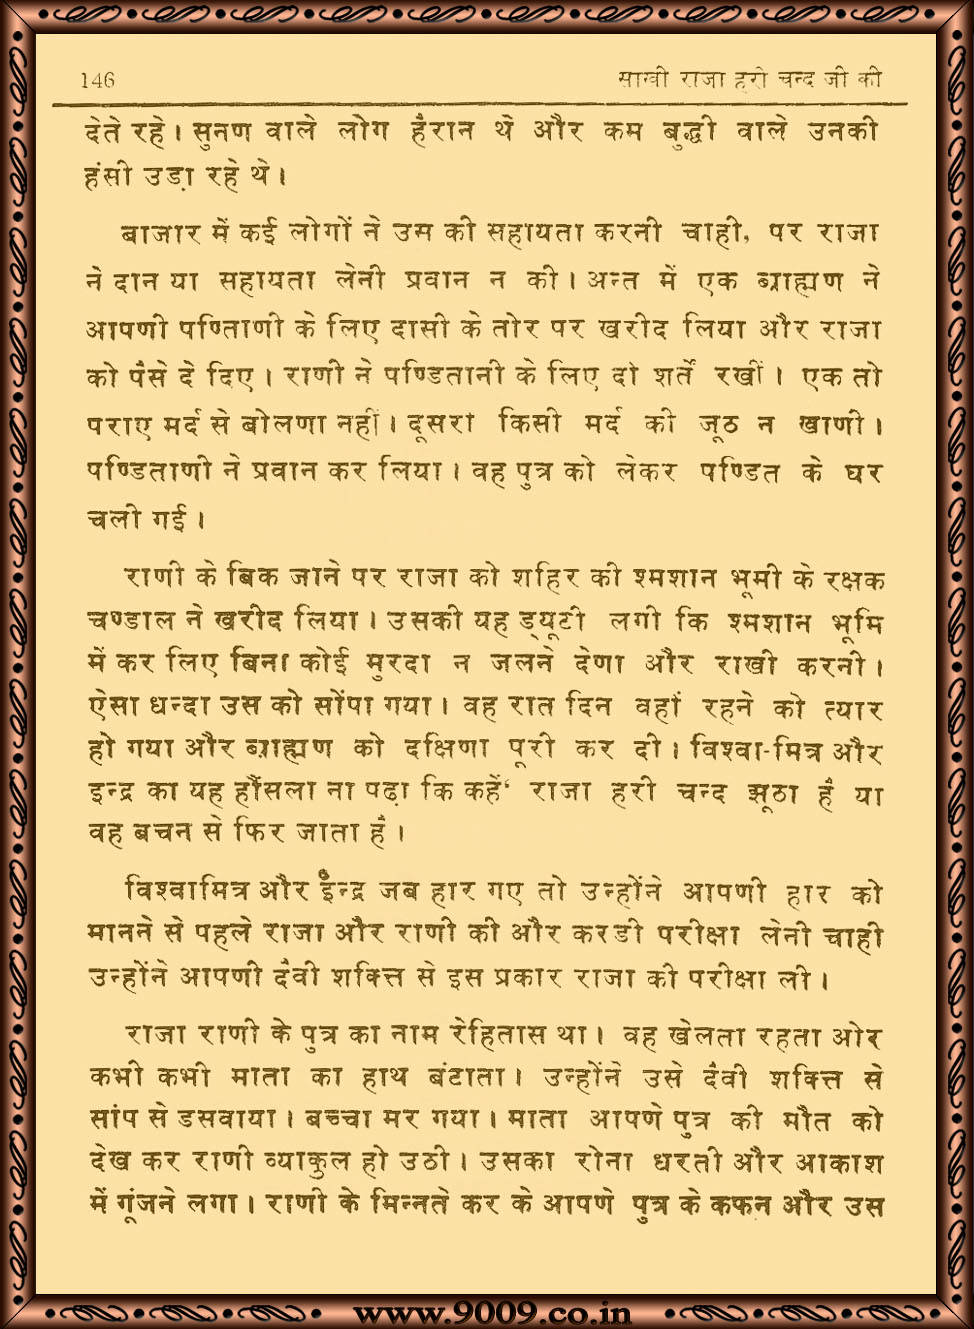 146 साखी राजा हरी चन्द जी की
देते रहे। सुनण वाले लोग हैरान थे और कम बुद्धी वाले उनकी
हंसी उडा़ रहे थे।
बाजार में कई लोगों ने उस की सहायता करनी चाही, पर राजा
ने दान या सहायता लेनी प्रवान न की। अन्त में एक ब्राह्मण ने
आपणी पण्तिाणी के लिए दासी के तोर पर खरीद लिया और राजा
को पैसे दे दिए। राणी ने पण्डितानी के लिए दो शर्तें रखीं। एक तो
पराए मर्द से बोलणा नहीं। दूसरा किसी मर्द की जूठ न खाणी।
पण्डिताणी ने प्रवान कर लिया। वह पुत्र को लेकर पण्डित के घर
चली गई।
राणी के बिक जाने पर राजा को शहिर की श्मशान भूमी के रक्षक
चण्डाल ने खरीद लिया। उसकी यह ड्यूटी लगी कि श्मशान भूमि
में कर लिए बिना कोई मुरदा न जलने देणा और राखी करनी।
ऐसा धन्दा उस को सोंपा गया। वह रात दिन वहां रहने को त्यार
हो गया और ब्राह्मण को दक्षिणा पूरी कर दी। विश्वा-मित्र और
इन्द्र का यह हौंसला ना पढ़ा कि कहें राजा हरी चन्द झूठा है या
वह बचन से फिर जाता है।
विश्वामित्र और ईन्द्र जब हार गए तो उन्होंने आपणी हार को
मानने से पहले राजा और राणी की और करडी परीक्षा लेनी चाही
उन्होंने आपणी दैवी शक्ति से इस प्रकार राजा की परीक्षा ली।
राजा राणी के पुत्र का नाम रेहितास था। वह खेलता रहता ओर
कभी कभी माता का हाथ बंटाता। उन्होंने उसे दैवी शक्ति से
सांप से डसवाया। बच्चा मर गया। माता आपणे पुत्र की मौत को
देख कर राणी व्याकुल हो उठी। उसका रोना धरती और आकाश
में गूंजने लगा। राणी के मिन्नते कर के आपणे पुत्र के कफन और उस
www.9009.co.in